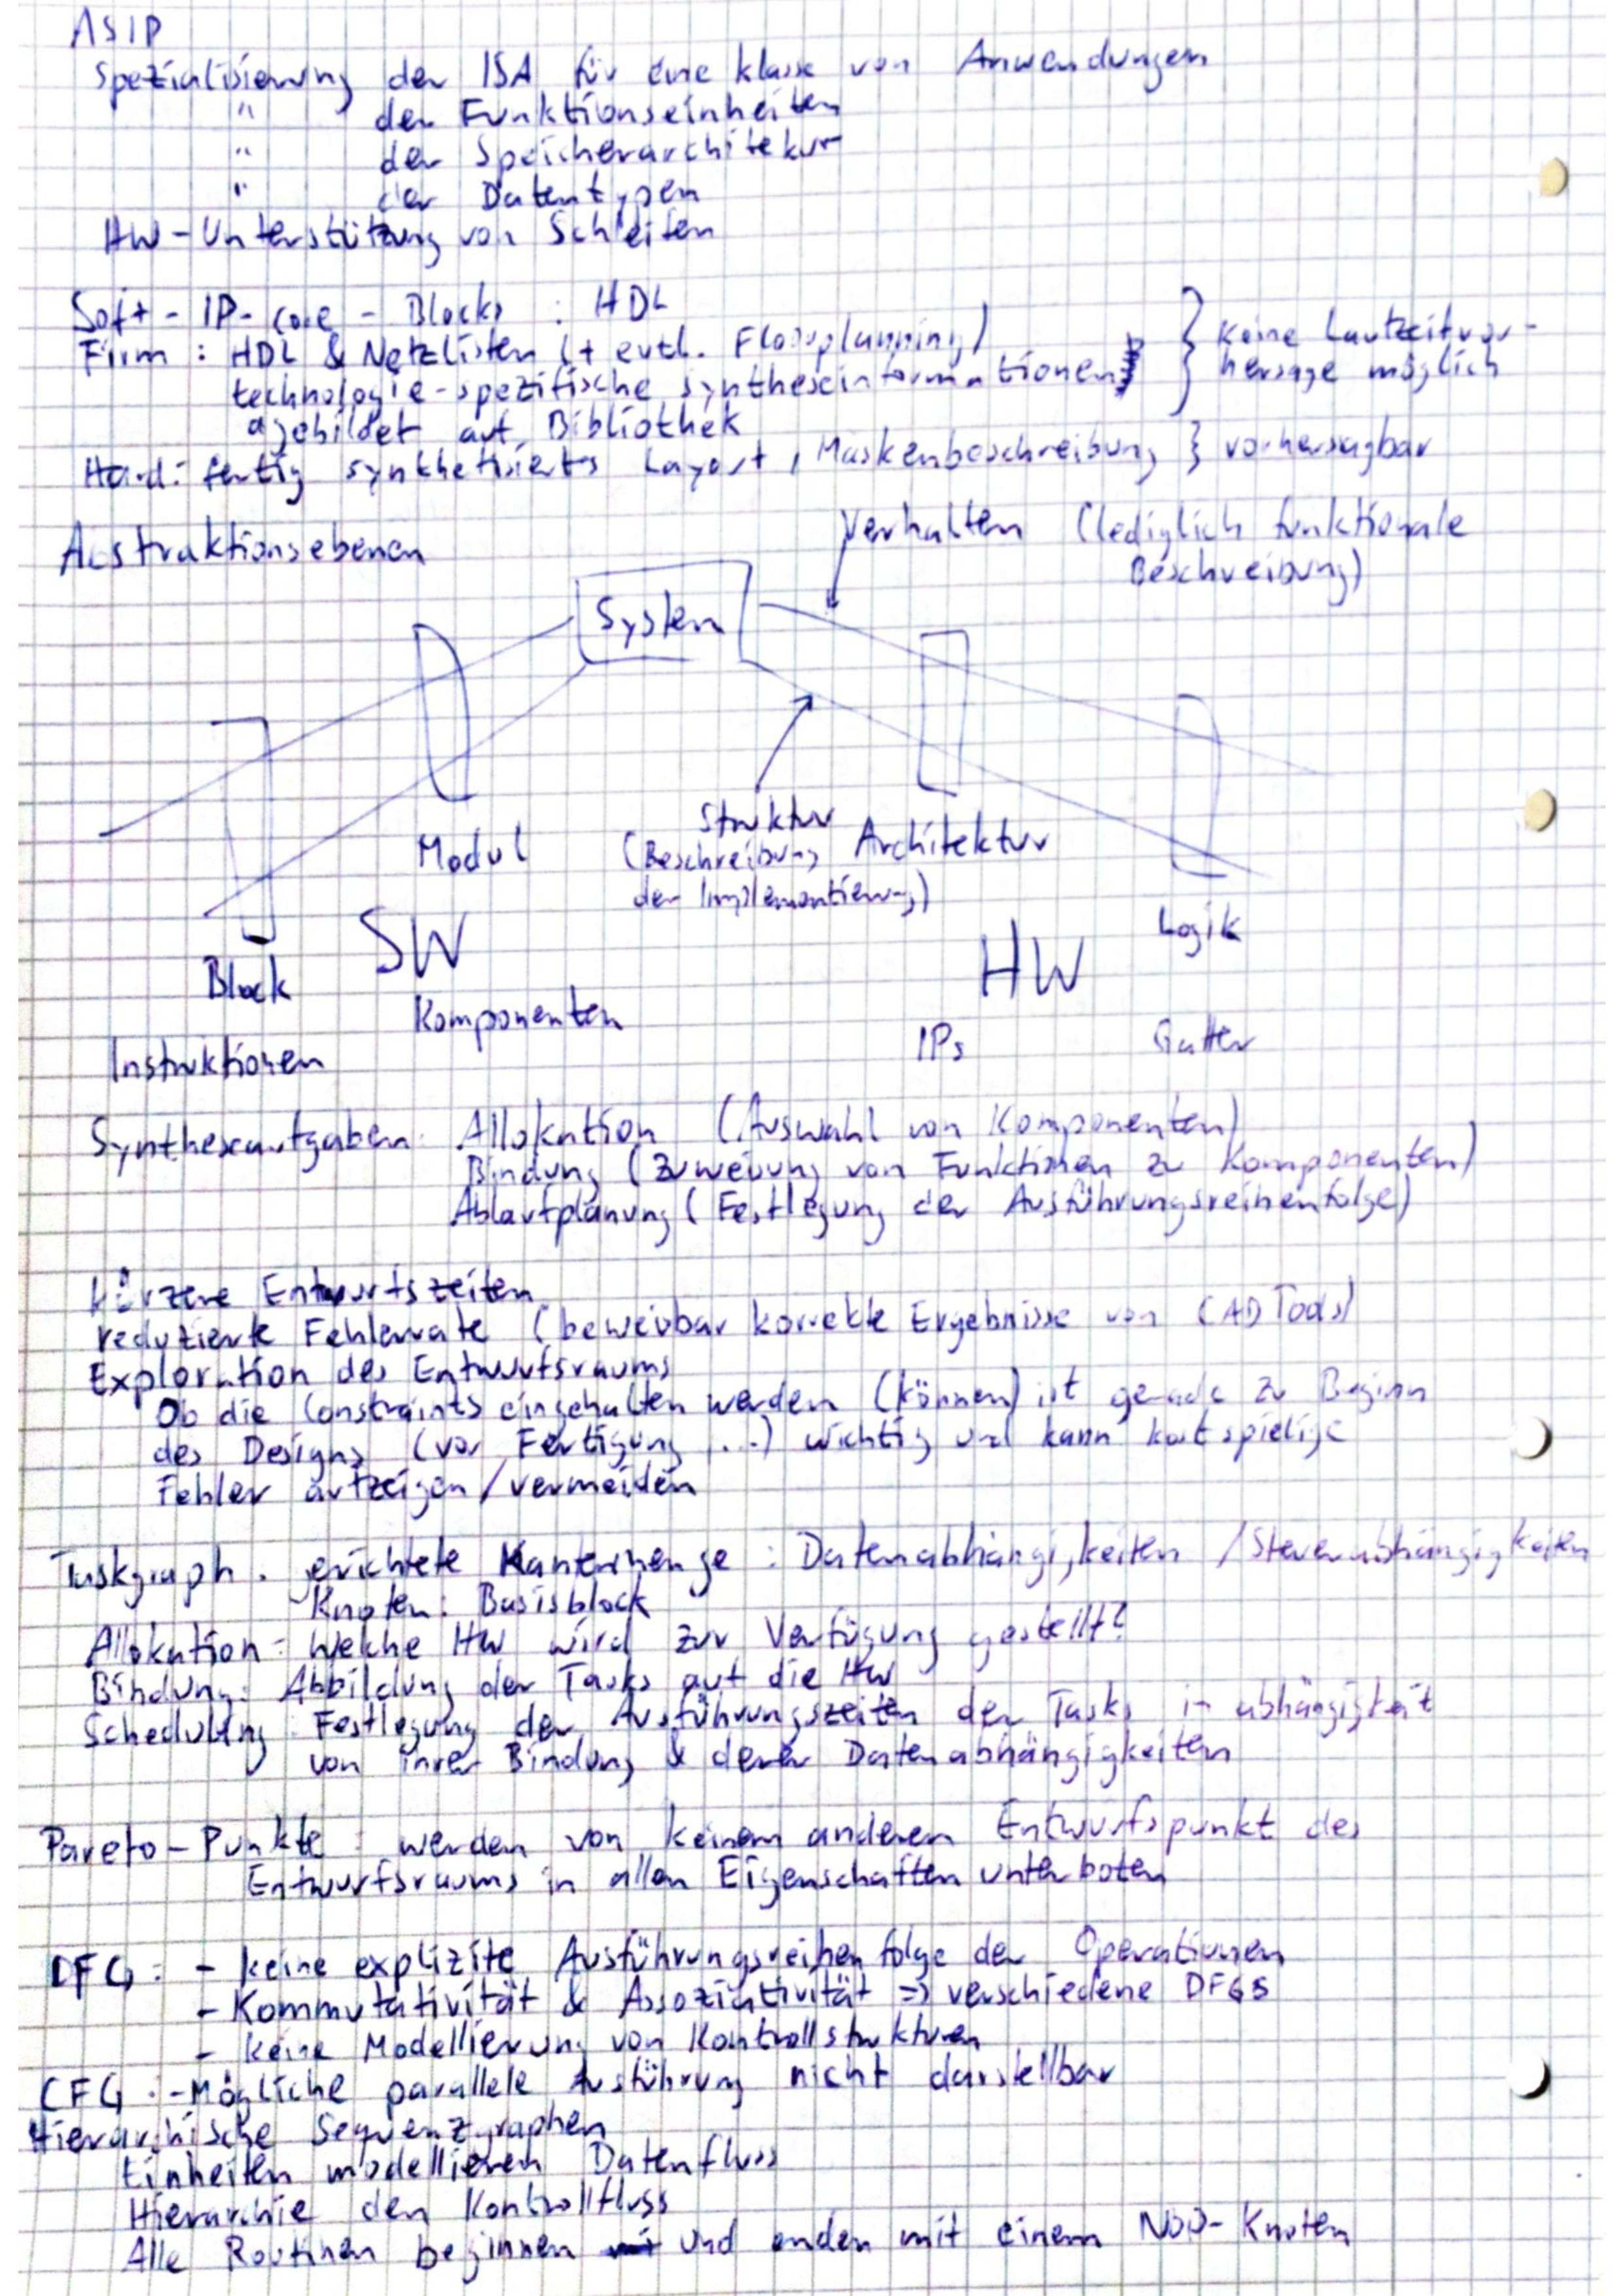 ASIP
Spezialisierung der ISA für eine Klasse von Anwendungen
" der Funktionseinheiten
" der Speicherarchitektur
" der Datentypen
HW-Unterstützung von Schleifen
Soft-IP-core-Blocks : HDL
Firm : HDL & Netzlisten (+ evtl. Floorplanning)
technologie-spezifische Syntheseinformationen } Keine Laufzeitvor-
hersage möglich
agebildet auf Bibliothek
Hard: fertig synthetisiertes Layout, Maskenbeschreibung } vorhersagbar
Abstraktionsebenen
Verhalten (lediglich funktionale
Beschreibung)
System
Struktur
(Beschreibung
der Implementierung)
Modul
Architektur
Logik
Block
SW
HW
Komponenten
Instruktionen
IPs
Gatter
Syntheseaufgaben: Allokation (Auswahl von Komponenten)
Bindung (Zuweisung von Funktionen zu Komponenten)
Ablaufplanung (Festlegung der Ausführungsreihenfolge)
kürzere Entwurfszeiten
reduzierte Fehlerrate (beweisbar korrekte Ergebnisse von CAD Tools)
Exploration des Entwurfsraums
Ob die Constraints eingehalten werden (können) ist gerade zu Beginn
des Designs (vor Fertigung, ...) wichtig und kann kostspielige
Fehler aufzeigen/vermeiden
Taskgraph: gerichtete Kantenmenge : Datenabhängigkeiten / Steuerabhängigkeiten
Knoten: Basisblock
Allokation: Welche HW wird zur Verfügung gestellt?
Bindung: Abbildung der Tasks auf die HW
Scheduling: Festlegung der Ausführungszeiten der Tasks in abhängigkeit
von ihrer Bindung & deren Datenabhängigkeiten
Pareto-Punkte: werden von keinem anderen Entwurfspunkt des
Entwurfsraums in allen Eigenschaften unterboten
DFG: - keine explizite Ausführungsreihenfolge der Operationen
- Kommutativität & Assoziativität => verschiedene DFGs
- keine Modellierung von Kontrollstrukturen
CFG: - Mögliche parallele Ausführung nicht darstellbar
Hierarchische Sequenzgraphen
Einheiten modellieren Datenfluss
Hierarchie den Kontrollfluss
Alle Routinen beginnen und enden mit einem NOP-Knoten